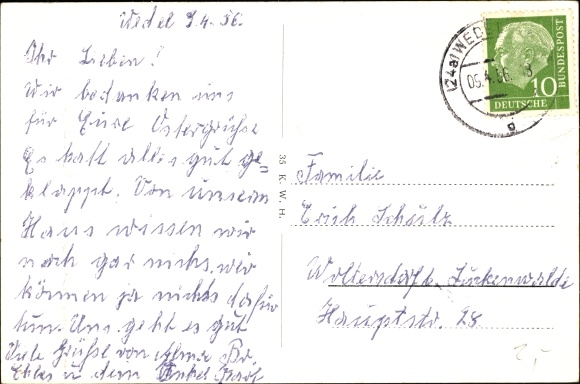 Wedel 9.4.56.
Ihr Lieben!
Wir bedanken uns
für Eure Ostergrüsse
Es hatt alles gut ge-
klappt. Von unseren
Haus wissen wir
noch gar nichts, wir
können ja nichts dafür
tun. Uns geht es gut
Viele Grüsse von
(24a) WEDEL
05.4.56. 18
a
10
DEUTSCHE
BUNDESPOST
35 K. W. H.
Familie
Erich Schölz
Woltersdorf b. Luckenwalde
Hauptstr. 28
2,-